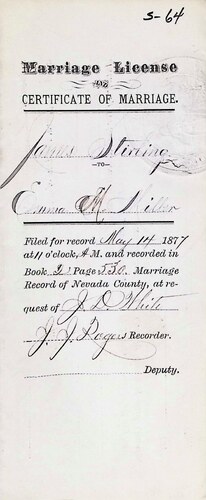 S-64
Marriage License
OR
CERTIFICATE OF MARRIAGE.
James Stirling
-TO-
Emma K. Miller
Filed for record May 14 1877
at 11 o'clock, A M. and recorded in
Book 2 Page 530. Marriage
Record of Nevada County, at re-
quest of J. D. White
J. J. Rogers Recorder.
Deputy.